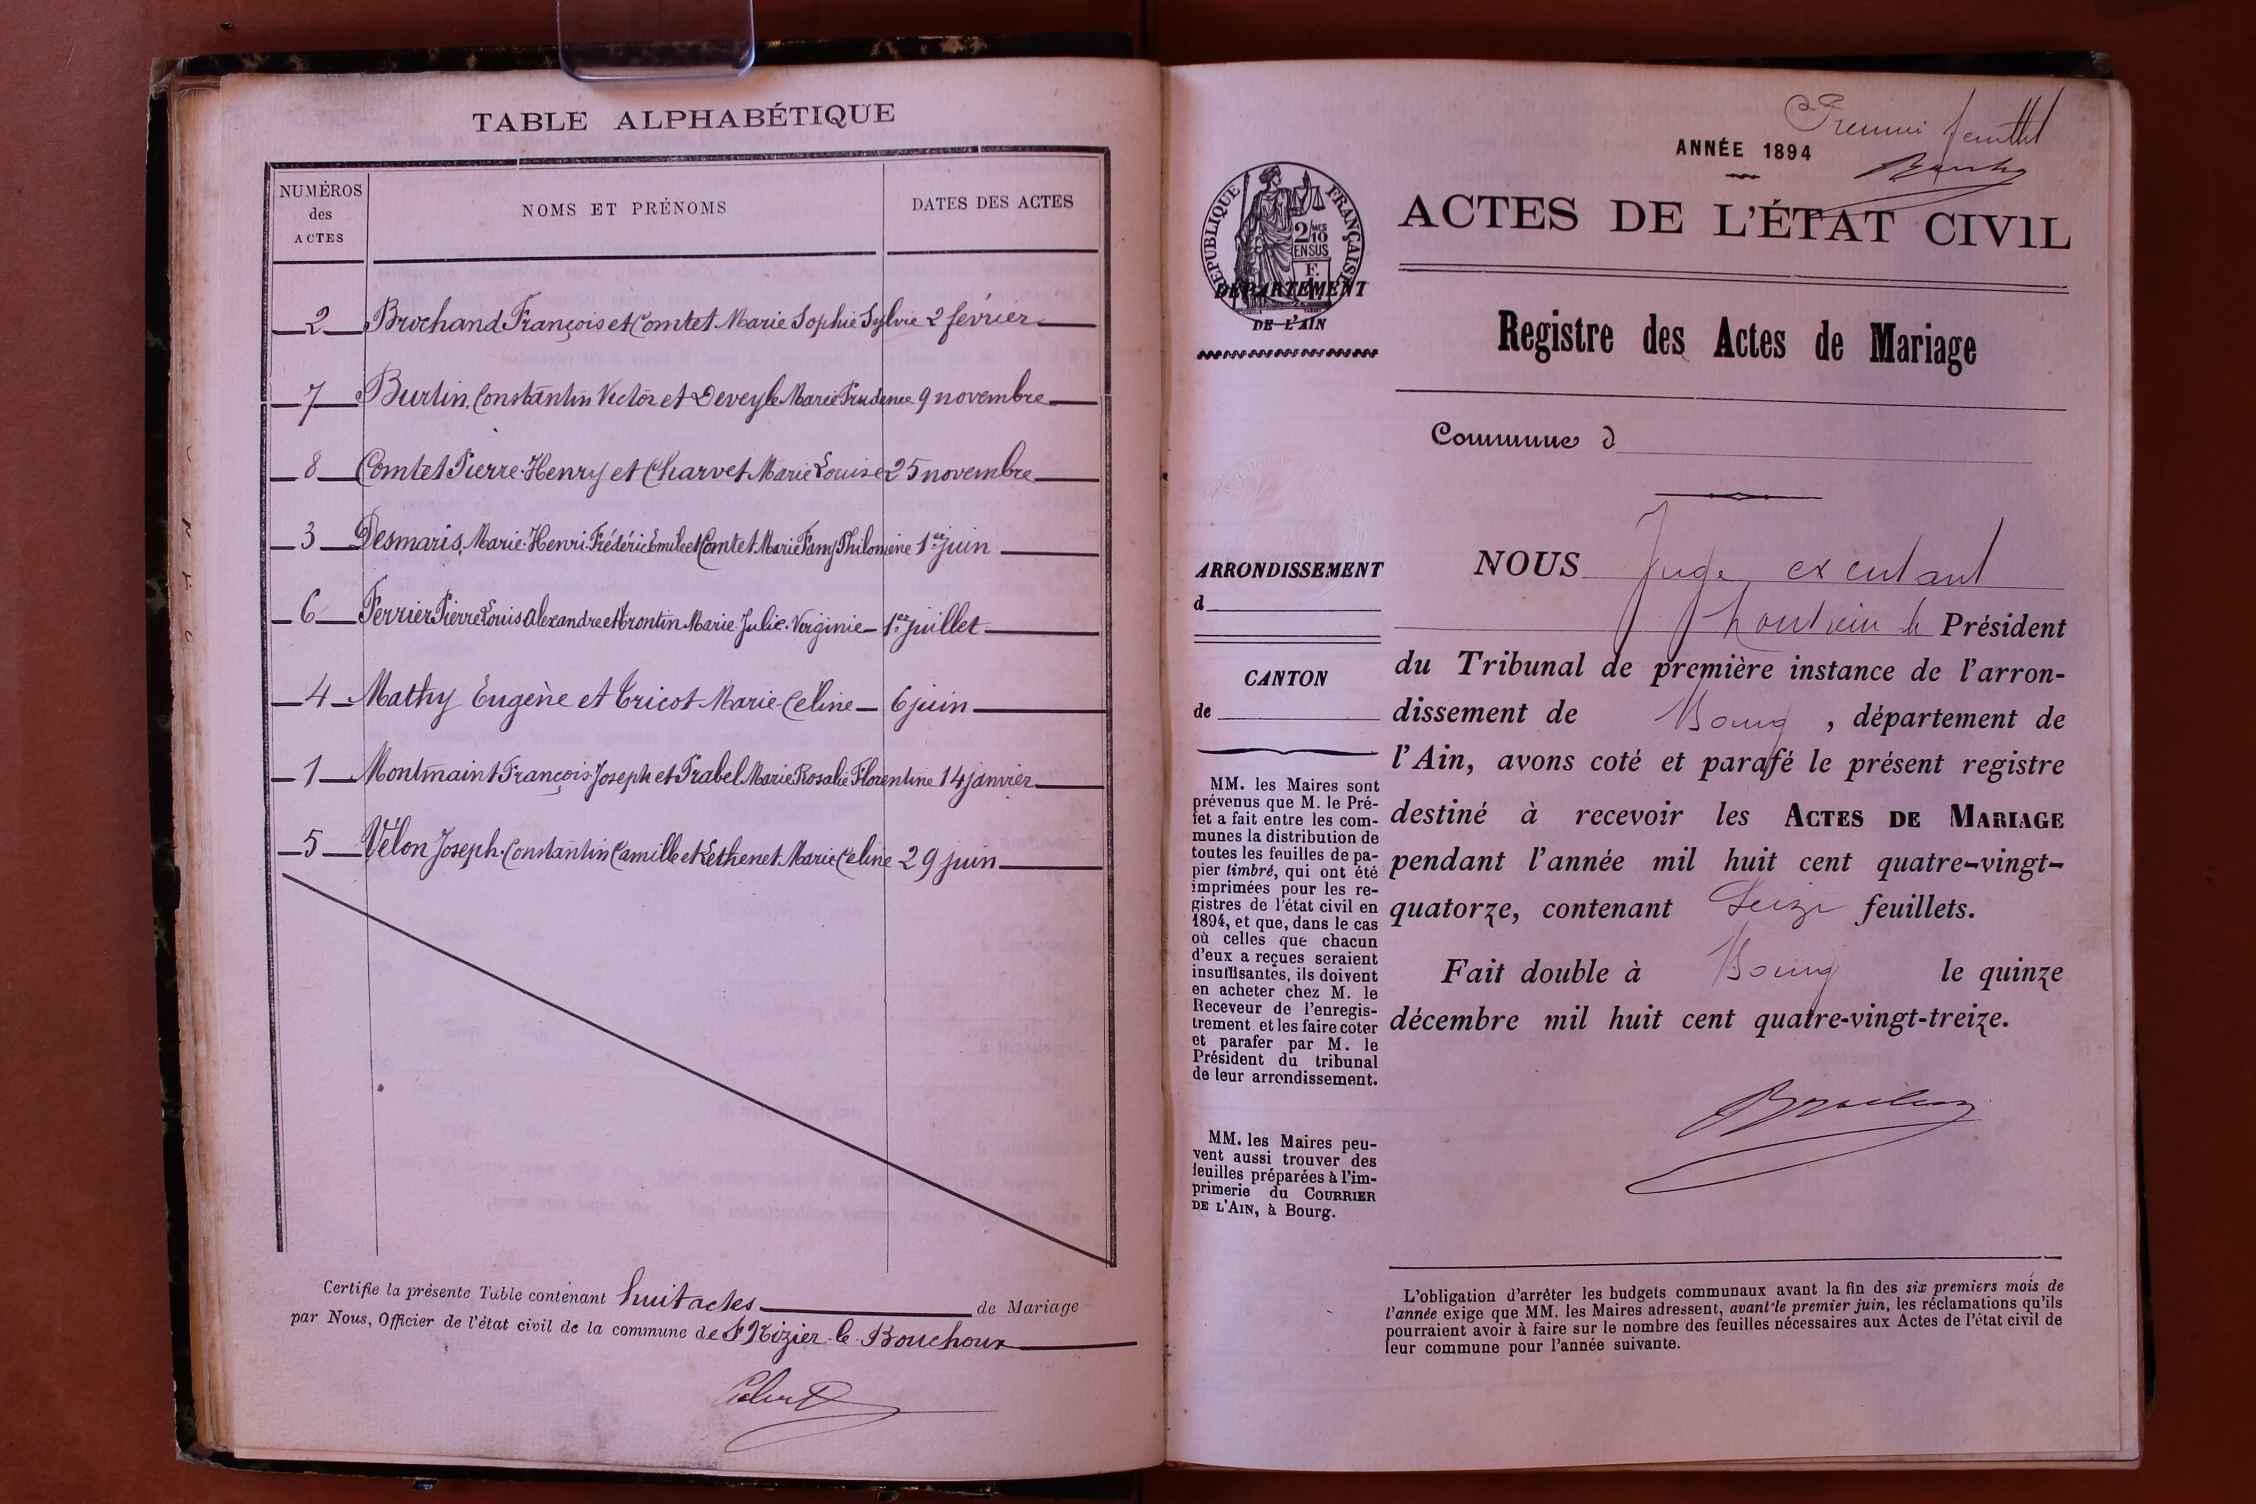 TABLE ALPHABÉTIQUE
NUMÉROS des ACTES
NOMS ET PRÉNOMS
DATES DES ACTES
2 Brochand François et Comtet Marie Sophie Sylvie 2 février
7 Burtin Constantin Victor et Deveyle Marie Prudence 9 novembre
8 Comtet Pierre-Henry et Charvet Marie Louise 25 novembre
3 Desmaris, Marie-Henri-Frédéric Emile et Comtet Marie Fany Philomène 1er juin
6 Ferrier Pierre Louis Alexandre et Marie Julie Virginie 1er juillet
4 Mathy Eugène et Tricot Marie-Céline 6 juin
1 Montmaint François-Joseph et Prabel Marie Rosalie Florentine 14 janvier
5 Vélon Joseph-Constantin Camille et Lethenet Marie Céline 29 juin
Certifie la présente Table contenant huit actes de Mariage
par Nous, Officier de l'état civil de la commune de St Nizier-le-Bouchoux
Premier feuillet
ANNÉE 1894
RÉPUBLIQUE FRANÇAISE
2/10 EN SUS
DÉPARTEMENT
DE L'AIN
ACTES DE L'ÉTAT CIVIL
Registre des Actes de Mariage
Commune d
ARRONDISSEMENT
d
CANTON
de
MM. les Maires sont
prévenus que M. le Pré-
fet a fait entre les com-
munes la distribution de
toutes les feuilles de pa-
pier timbré, qui ont été
imprimées pour les re-
gistres de l'état civil en
1894, et que, dans le cas
où celles que chacun
d'eux a reçues seraient
insuffisantes, ils doivent
en acheter chez M. le
Receveur de l'enregis-
trement et les faire coter
et parafer par M. le
Président du tribunal
de leur arrondissement.
MM. les Maires peu-
vent aussi trouver des
feuilles préparées à l'im-
primerie du COURRIER
DE L'AIN, à Bourg.
NOUS Juge
le Président
du Tribunal de première instance de l'arron-
dissement de Bourg, département de
l'Ain, avons coté et parafé le présent registre
destiné à recevoir les ACTES DE MARIAGE
pendant l'année mil huit cent quatre-vingt-
quatorze, contenant Seize feuillets.
Fait double à Bourg le quinze
décembre mil huit cent quatre-vingt-treize.
L'obligation d'arrêter les budgets communaux avant la fin des six premiers mois de
l'année exige que MM. les Maires adressent, avant le premier juin, les réclamations qu'ils
pourraient avoir à faire sur le nombre des feuilles nécessaires aux Actes de l'état civil de
leur commune pour l'année suivante.